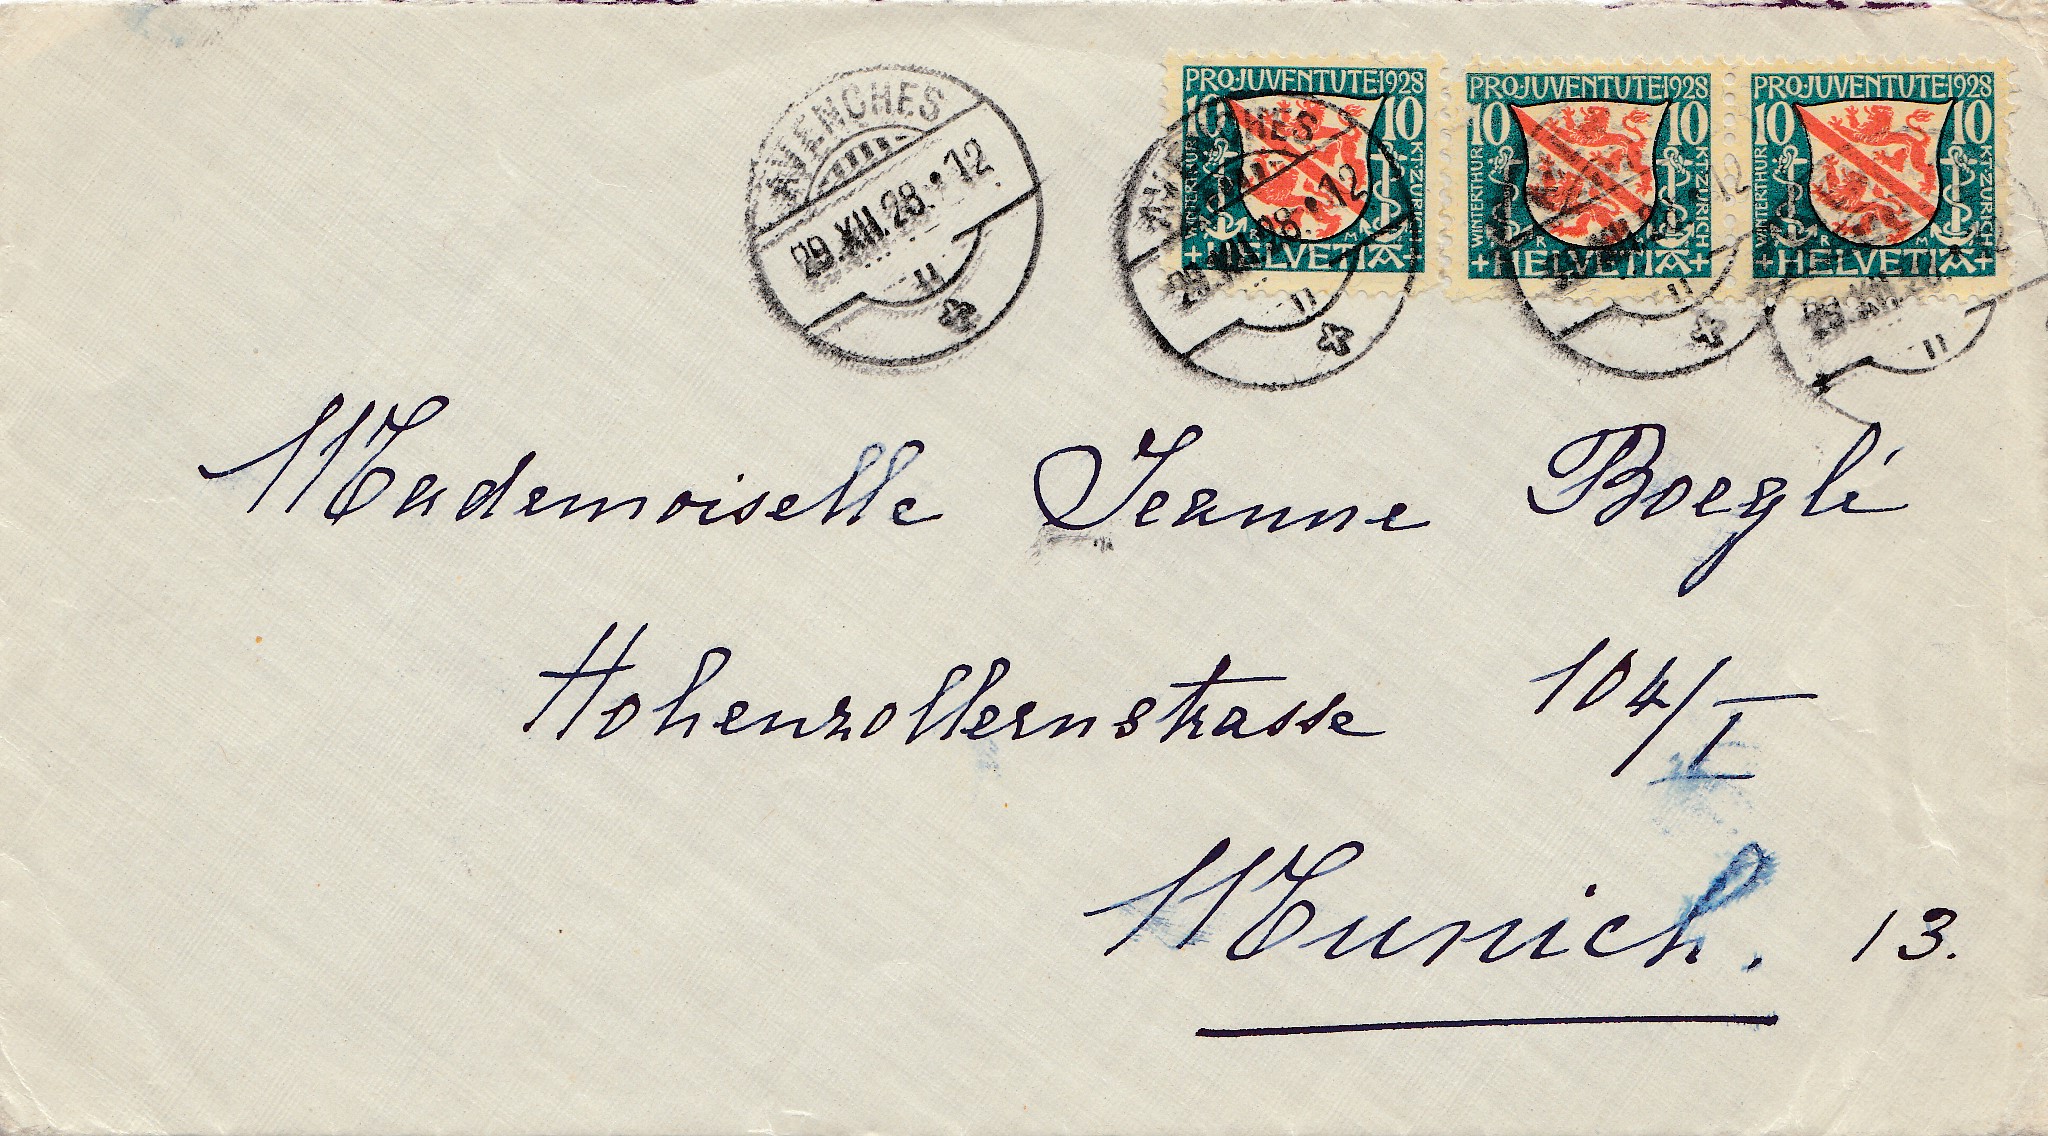 AVENCHES
29.XII.28.•12
PRO JUVENTUTE 1928
10 10
WINTERTHUR
KT. ZÜRICH
R M
+HELVETIA+
PRO JUVENTUTE 1928
10 10
WINTERTHUR
KT. ZÜRICH
R M
+HELVETIA+
PRO JUVENTUTE 1928
10 10
WINTERTHUR
KT. ZÜRICH
R M
+HELVETIA+
AVENCHES
29.XII.28.•12
Mademoiselle Jeanne Boegli
Hohenzollernstrasse 104/I
Munich. 13.